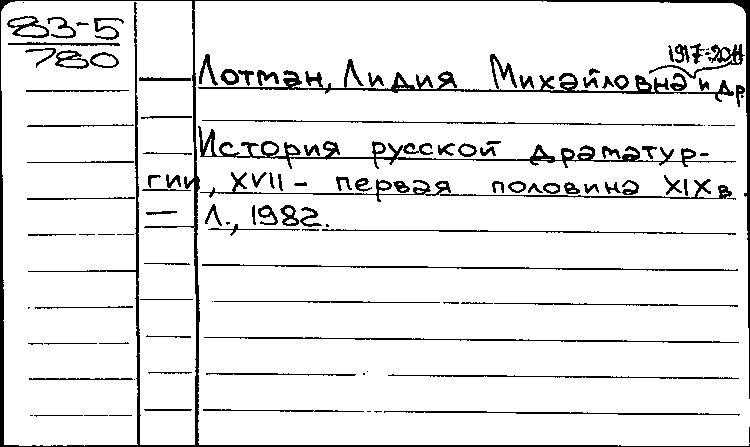 83-5
780
1917-2011
Лотман, Лидия Михайловна и др.
История русской драматур-
гии, XVII - первая половина XIX в.
— Л., 1982.